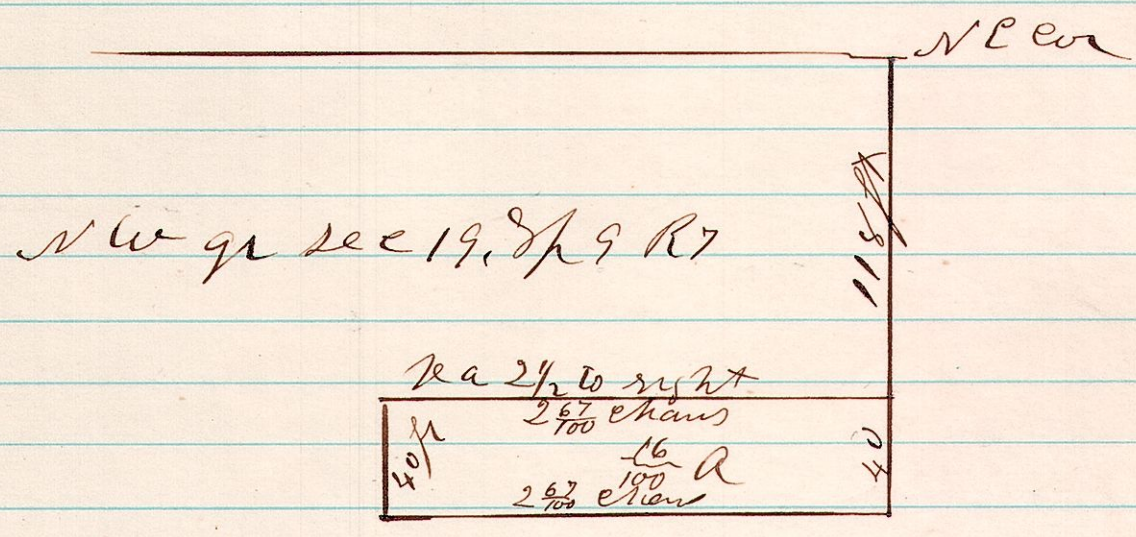 N E Cor
118 ft
N W qr Sec 19, Tp 9 R7
Va 2 1/2 to right
2 67/100 chains
40 ft
16/100 A
40
2 67/100 chains